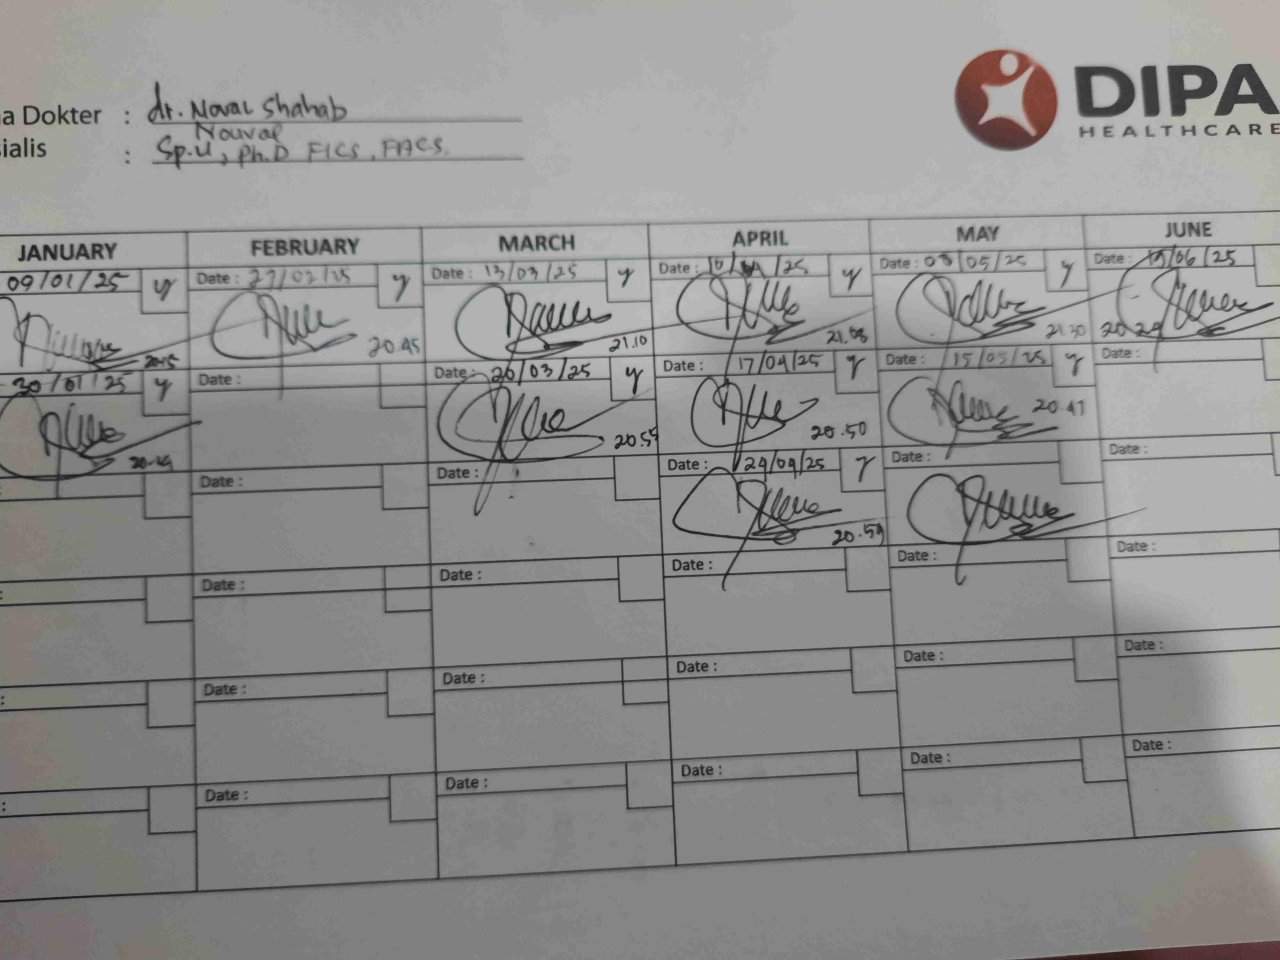 a Dokter : dr. Noval Shahab
Nouval
ialis : Sp.U, Ph.D FICS, FACS.
DIPA
HEALTHCARE
JANUARY FEBRUARY MARCH APRIL MAY JUNE
09/01/25 y Date : 27/02/25 y Date : 13/03/25 y Date : /25 y Date : 08/05/25 y Date : /06/25
20.45 21.10 21.08 21.30 20.29
30/01/25 y Date : Date : 20/03/25 y Date : 17/04/25 y Date : 15/05/25 y Date :
20.55 20.50 20.47
: Date : Date : Date : 24/04/25 y Date : Date :
20.59
: Date : Date : Date : Date : Date :
: Date : Date : Date : Date : Date :
: Date : Date : Date : Date : Date :